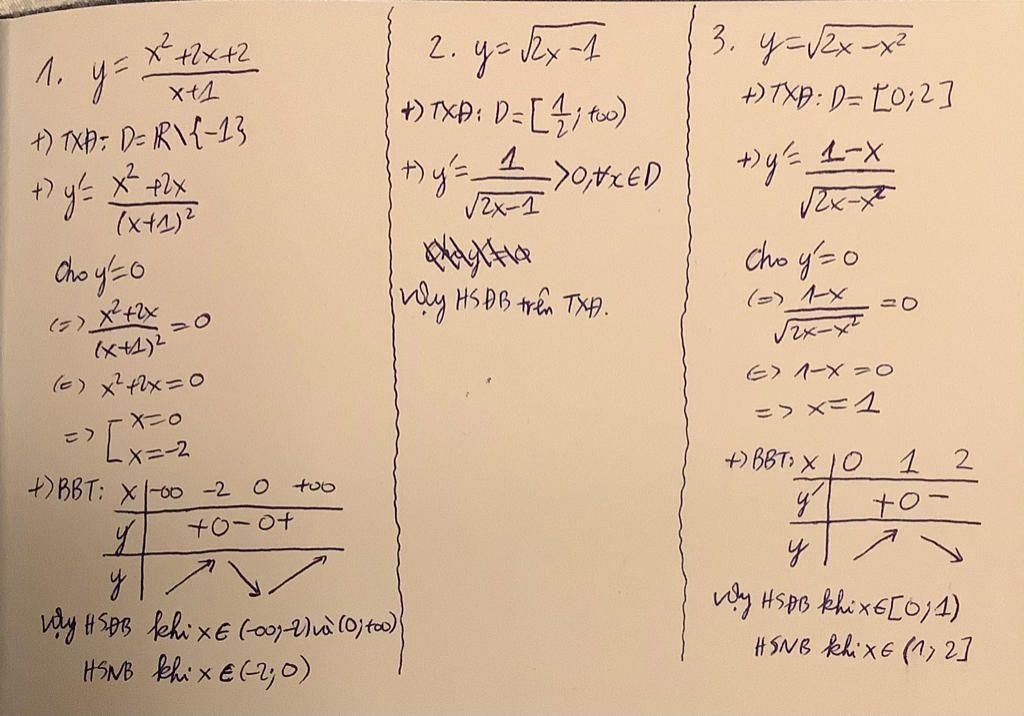 1. y = (x² + 2x + 2)/(x+1)
+) TXĐ: D = ℝ\{-1}
+) y' = (x² + 2x)/(x+1)²
Cho y' = 0
(=) (x² + 2x)/(x+1)² = 0
(=) x² + 2x = 0
=> [ x = 0
x = -2
+) BBT: x | -∞ -2 0 +∞
y' | + 0 - 0 +
y | ↗ ↘ ↗
Vậy HSĐB khi x ∈ (-∞; -2) và (0; +∞)
HSNB khi x ∈ (-2; 0)
2. y = √(2x - 1)
+) TXĐ: D = [1/2; +∞)
+) y' = 1/√(2x-1) > 0, ∀x ∈ D
Vậy HSĐB trên TXĐ.
3. y = √(2x - x²)
+) TXĐ: D = [0; 2]
+) y' = (1-x)/√(2x-x²)
Cho y' = 0
(=) (1-x)/√(2x-x²) = 0
(=) 1-x = 0
=> x = 1
+) BBT: x | 0 1 2
y' | + 0 -
y | ↗ ↘
Vậy HSĐB khi x ∈ [0; 1)
HSNB khi x ∈ (1; 2]